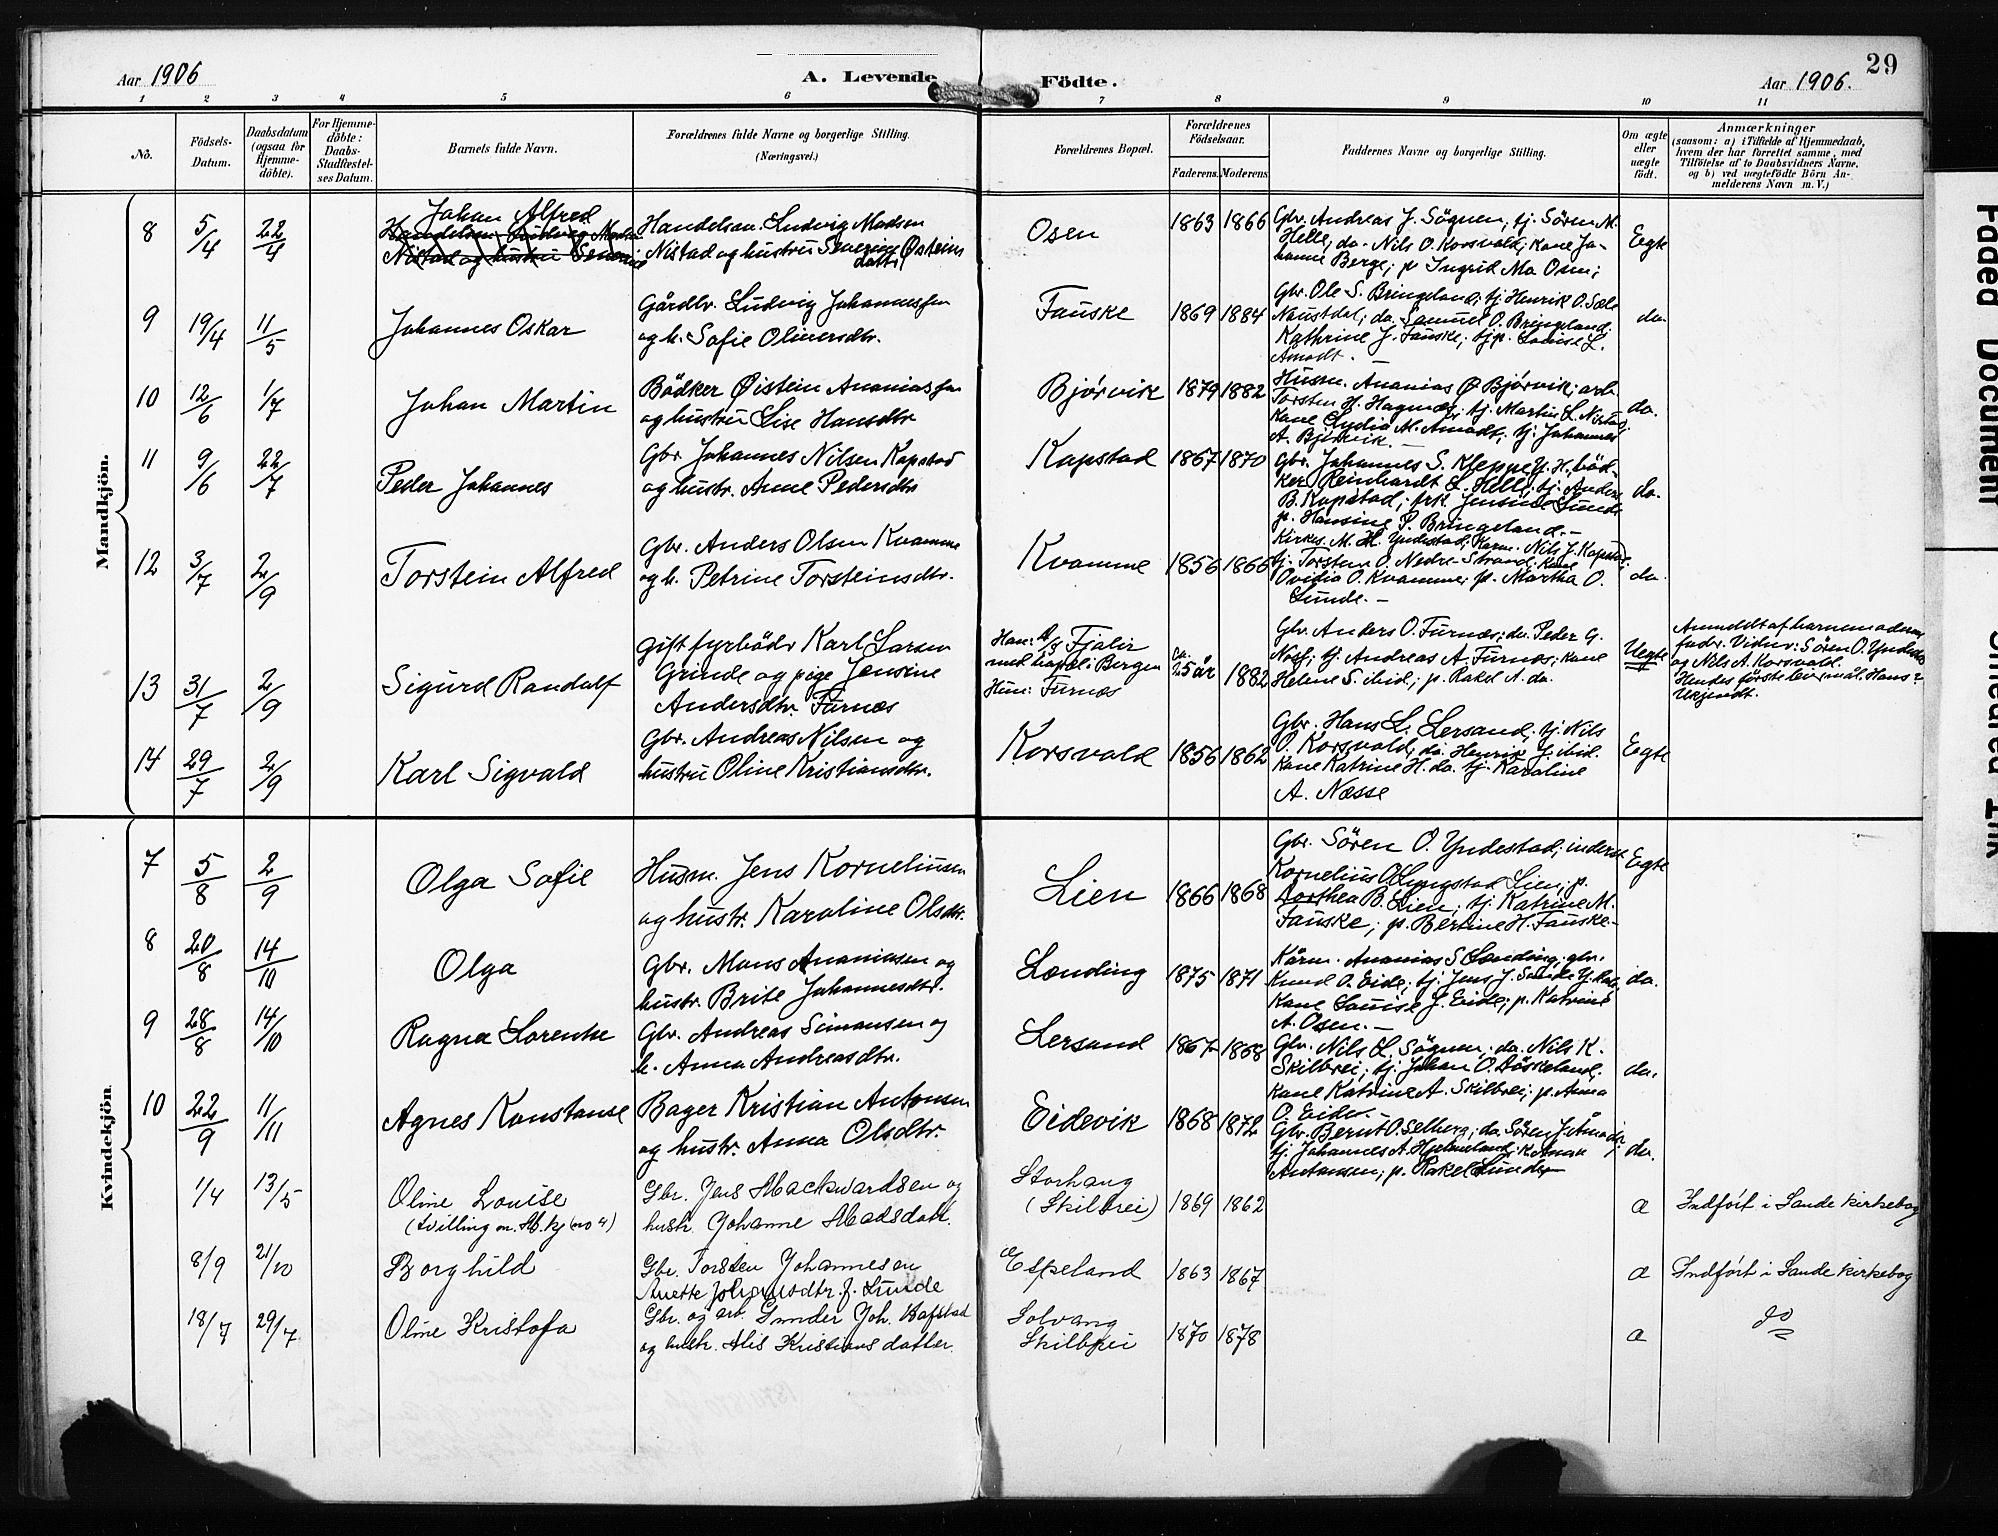 29
Aar 1906
A. Levende
Födte.
Aar 1906.
1 2 3 4 5 6 7 8 9 10 11
No.
Födsels-
Datum.
Daabsdatum
(ogsaa for
Hjemme-
döbte).
For Hjemme-
döbte:
Daabs-
Stadfæstel-
ses Datum.
Barnets fulde Navn.
Forældrenes fulde Navne og borgerlige Stilling.
(Næringsvei.)
Forældrenes Bopæl.
Forældrenes
Födselsaar.
Faderens. Moderens.
Faddernes Navne og borgerlige Stilling.
Om ægte
eller
uægte
födt.
Anmærkninger
(saasom: a) i Tilfælde af Hjemmedaab,
hvem der har forrettet samme, med
Tilföielse af to Daabsvidners Navne,
og b) ved uægtefödte Börn An-
melderens Navn m. V.)
Mandkjön.
8 5/4 22/4 Johan Alfred
Handelsm. Ludvig Madsen
Nistad og hustru Severine Østeins
datter
Osen 1863 1866
Gbr. Andreas J. Sögnen; tj. Sören M.
Helle; do. Nils O. Korsvald; kone Jo-
hanne Berge; p. Ingrid Ma Osen;
Egte
9 19/4 11/5 Johannes Oskar
Gårdbr. Ludvig Johannessen
og h. Sofie Oliversdtr.
Fauske 1869 1884
Gbr. Ole S. Bringeland; tj. Henrik O. Sæle
Naustdal; do. Samuel O. Bringeland;
Kathrine J. Fauske; tjp. Louise L.
Åmodt. -
do.
10 12/6 1/7 Johan Martin
Bödker Øistein Ananiassen
og hustru Lise Hansdtr
Bjørvik 1879 1882
Husm. Ananias Ø. Bjørvik; arb.
Torsten H. Hagnæs; tj. Martin L. Nistad;
Kone Lydia M. Åmodt; tj. Johannes
A. Bjørvik. -
do.
11 9/6 22/7 Peder Johannes
Gbr. Johannes Nilsen Kapstad
og hustr. Anne Pedersdtr
Kapstad 1867 1870
Gbr. Johannes S. Kleppe Y. H. böd-
ker Reinhardt L. Helle; tj. Anders
B. Kapstad; frk. Jensine Sunde
p. Hansine P. Bringeland. -
do.
12 3/7 2/9 Torstein Alfred
Gbr. Anders Olsen Kvamme
og h. Petrine Torsteinsdtr.
Kvamme 1856 1866
Kirkes. M. H. Yndestad; Karm. Nils J. Kapstad;
tj. Torsten O. Nedre-Strand; Kone
Ovidia O. Kvamme; p. Martha O.
Sunde. -
do.
13 31/7 2/9 Sigurd Randulf
gift fyrböder Karl Larsen
Grinde og pige Jensine
Andersdtr. Furnæs
Han: D/S Fjalir
med bopæl i Bergen
Hun: Furnæs
ca. 25 år 1882
Gbr. Anders O. Furnæs; do. Peder G.
tj. Andreas A. Furnæs; Kone
Helene S. ibid.; p. Rakel A. do.
Uegte
Anmeldt af barnemoderens
fader. Vidner: Sören O. Yndestad
og Nils A. Korsvald.
Hendes förste leiermål. Hans?
Ukjendt.
14 29/7 2/9 Karl Sigvald
Gbr. Andreas Nilsen og
hustru Oline Kristiansdtr.
Korsvold 1856 1862
Gbr. Hans L. Lersand, tj. Nils
O. Korsvald, do. Henrik J. ibid.
Kone Katrine H. do. tj. Karoline
A. Næsse
Egte
Kvindekjön
7 5/8 2/9 Olga Sofie
Husm. Jens Korneliussen
og hustr. Karoline Olsdtr.
Lien 1866 1868
Gbr. Sören O. Yndestad; inderst
Kornelius O. Lyngstad Lien; p.
Dorthea B. Lien; tj. Katrine M.
Fauske; p. Bertine H. Fauske. -
Egte
8 20/8 14/10 Olga
Gbr. Mons Ananiasen og
hustr. Brite Johannesdtr.
Lending 1875 1871
Kårm. Ananias S. Lending; gbr.
Knud O. Eide; tj. Jens J. Sande
Kone Louise J. Eide; p. Katrine
A. Osen. -
do.
9 28/8 14/10 Ragna Lorentse
Gbr. Andreas Simonsen og
h. Anna Andreasdtr.
Lersand 1867 1868
Gbr. Nils L. Sögnen; do. Nils K.
Skilbrei; tj. Johan O. Döskeland.
Kone Katrine A. Skilbrei; p. Anna
O. Eide.
do.
10 22/9 11/11 Agnes Konstanse
Bager Kristian Antonsen
og hustr. Anna Olsdtr.
Eidevik 1868 1872
Gbr. Bernt O. Selberg; do. Sören J. Åmodt;
tj. Johannes A. Hjelmeland; K. Anna
Antonsen; p. Rakel Sunde
do.
1/4 13/5 Oline Louise
(tvilling m. M.kj no 4)
Gbr. Jens Mackwardsen og
hustr. Johanne Madsdatt.
Storhaug
(Skilbrei) 1869 1862
a Indfört i Sande kirkebog
8/9 21/10 Borghild
Gbr. Torsten Johannesen
Anette Johansdtr. f. Sunde
Espeland 1863 1867
a Indfört i Sande kirkebog
18/7 29/7 Oline Kristofa
Gbr. og arb. Gunder Joh. Hafstad
og hustr. Alis Kristiansdatter.
Solvang
Skilbrei 1870 1878
a do
Faded Document